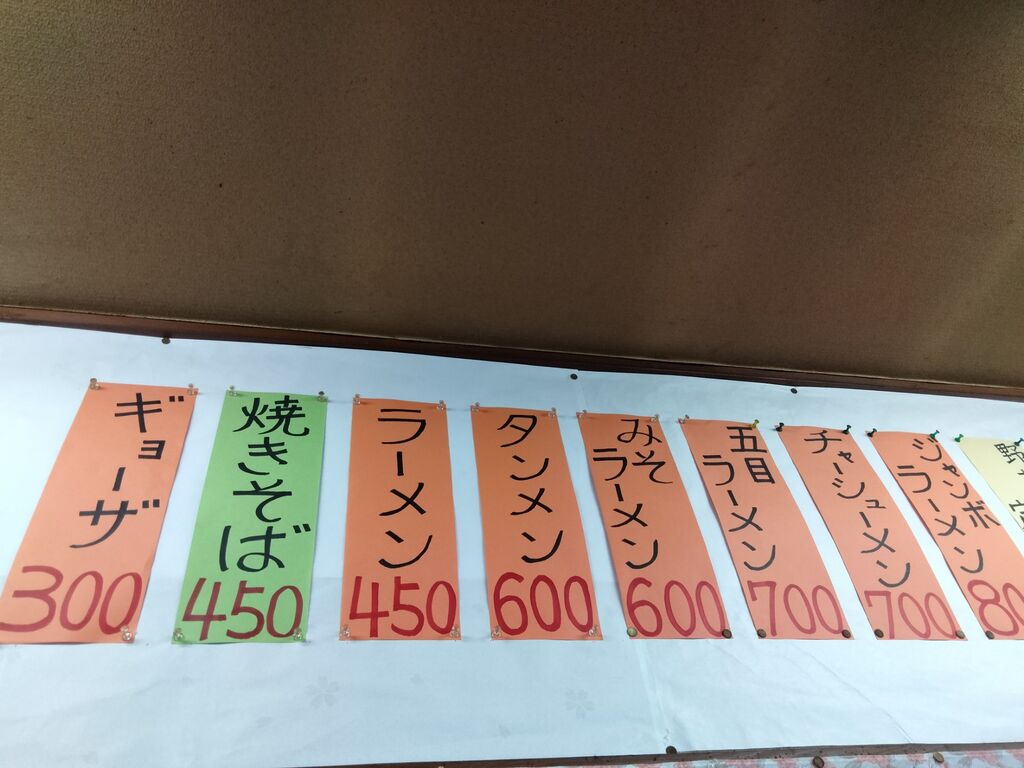 ギョーザ
300
焼きそば
450
ラーメン
450
タンメン
600
みそ
ラーメン
600
五目
ラーメン
700
チャーシューメン
700
ジャンボ
ラーメン
80
野